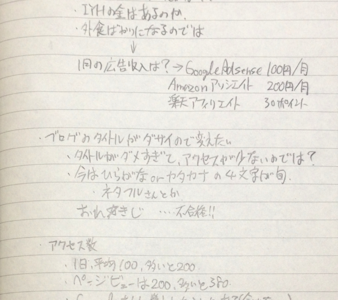 ・IYHの金はあるのか
・外食ばかりになるのでは
↓
1月の広告収入は？→Google Adsense 100円/月
Amazon アソシエイト 200円/月
楽天アフィリエイト 30ポイント
・ブログのタイトルがダサイので変えたい
・タイトルがダメすぎて、アクセスが少ないのでは？
・今はひらがな or カタカナの4文字が旬
・ネタフルさんとか
おれ書きじ ‥‥不合格!!
・アクセス数
・1日、平均100、多いと200
・ページビューは200、多いと380